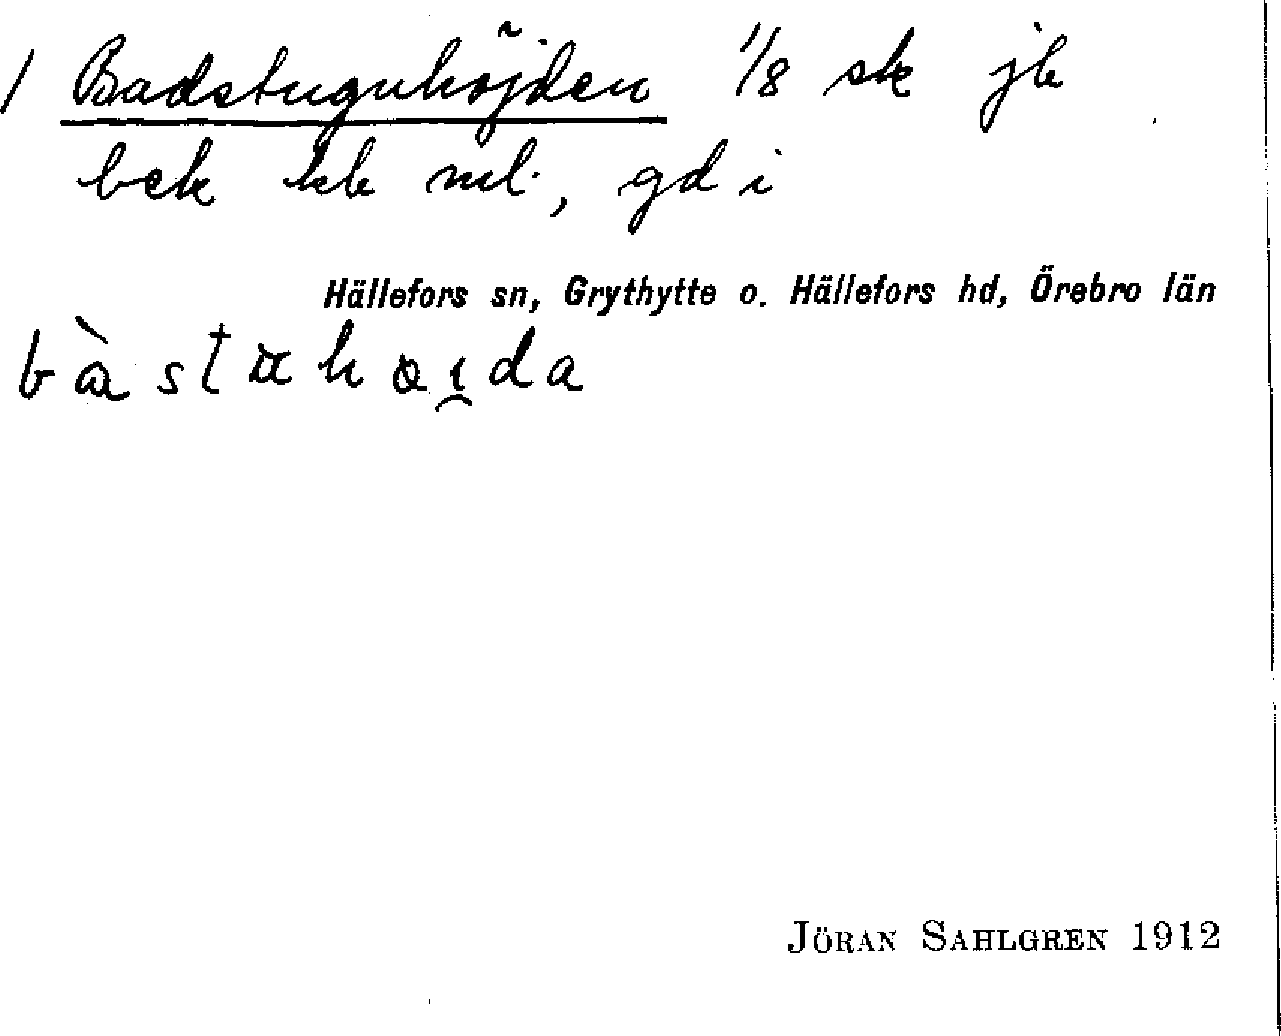 / Badstuguhöjden 1/8 sk jb
bek kb ml., gd i
Hällefors sn, Grythytte o. Hällefors hd, Örebro län
bàstuhöi̯da
JÖRAN SAHLGREN 1912